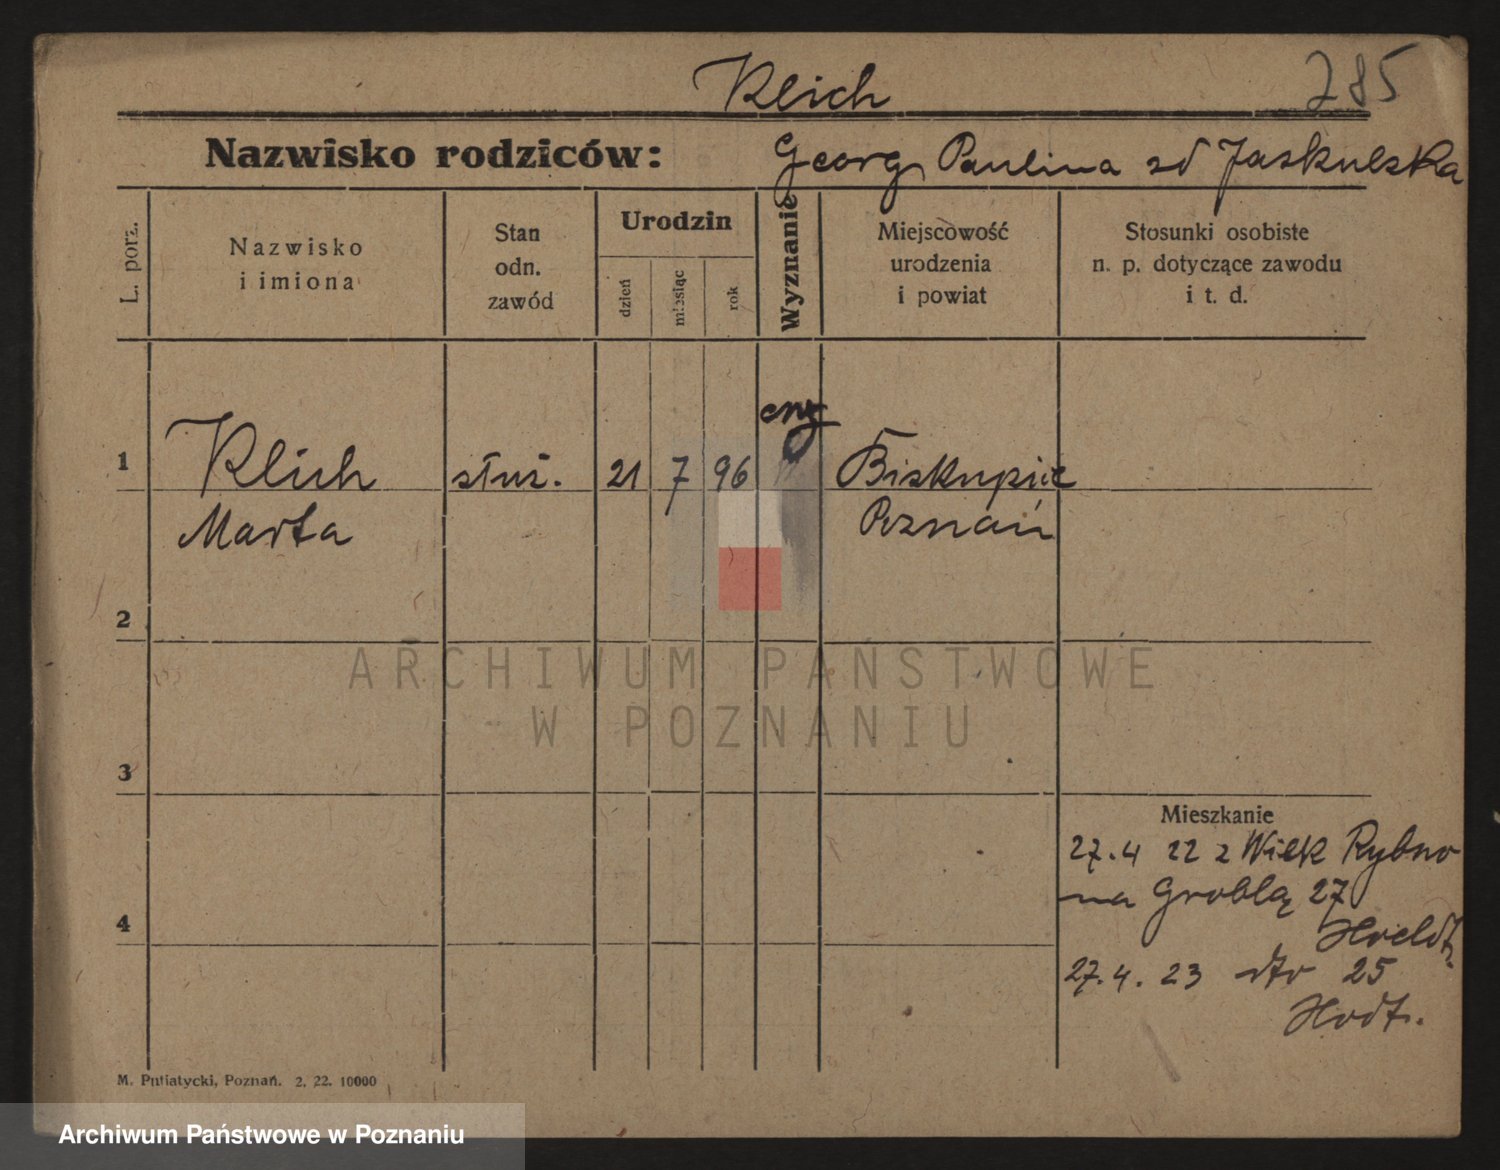 Klich
785
Nazwisko rodziców: Georg Paulina zd Jaskulska
L. porz.
Nazwisko
i imiona
Stan
odn.
zawód
Urodzin
dzień
miesiąc
rok
Wyznanie
Miejscowość
urodzenia
i powiat
Stosunki osobiste
n. p. dotyczące zawodu
i t. d.
1
Klich
Marta
służ.
21
7
96
Biskupice
Poznań
2
ARCHIWUM PAŃSTWOWE
W POZNANIU
3
Mieszkanie
27.4 22 z Wielk Rybno
na Groblą 27
4
27.4.23 dto 25
M. Putiatycki, Poznań. 2. 22. 10000
Archiwum Państwowe w Poznaniu